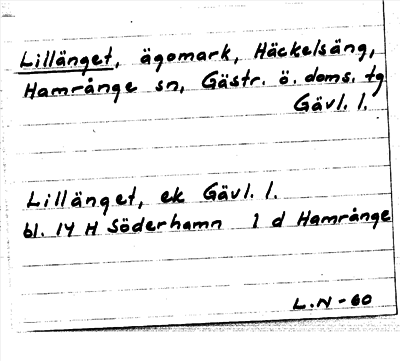 Lillänget, ägomark, Häckelsäng,
Hamrånge sn, Gästr. ö. doms. tg
Gävl. l.
Lillänget, ek Gävl. l.
bl. 14 H Söderhamn 1 d Hamrånge
L.N-60